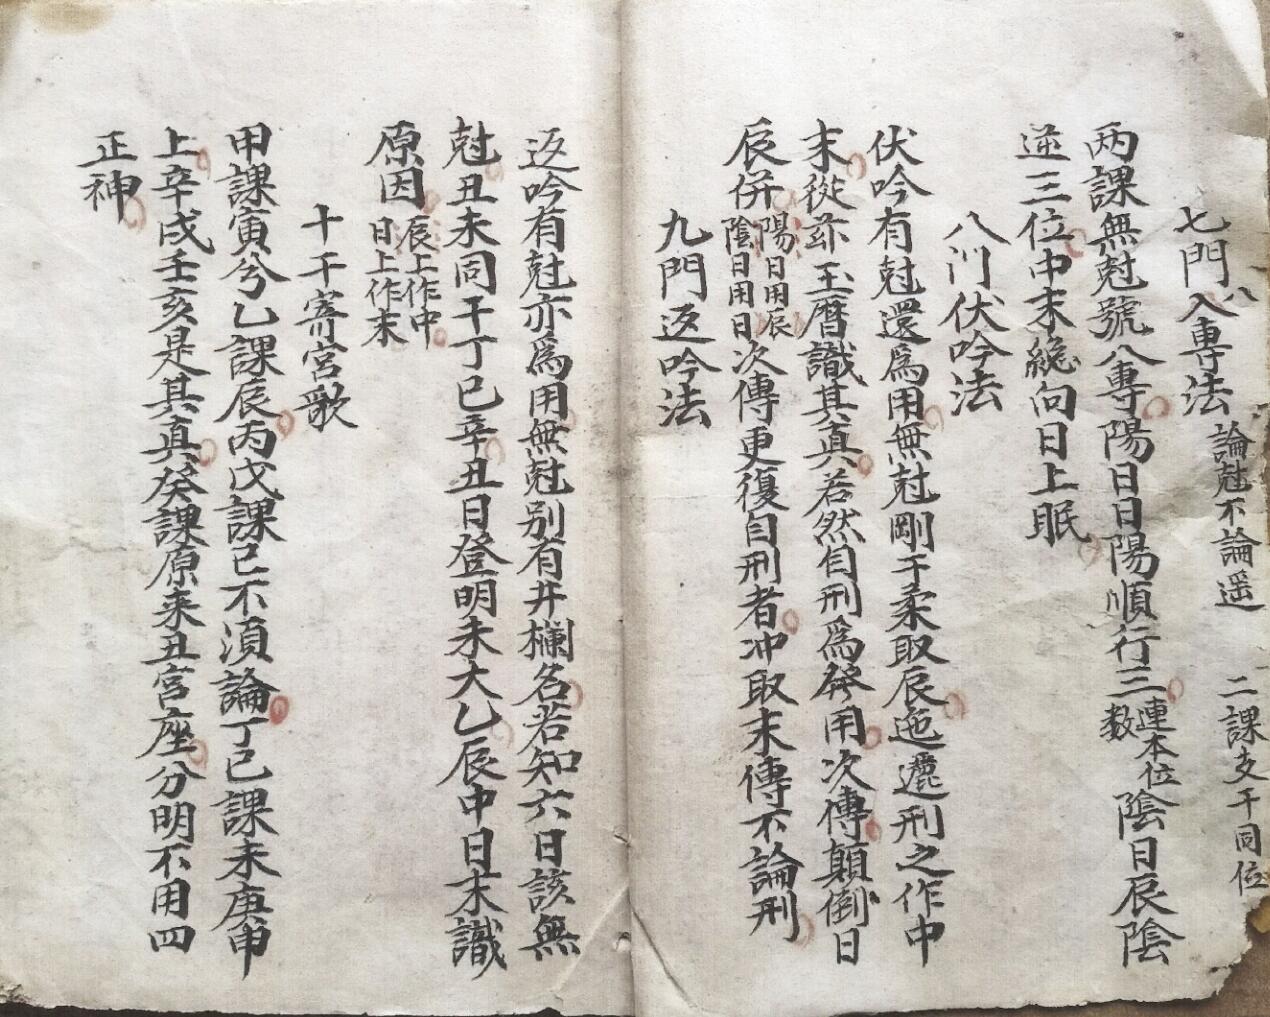 七門八專法 論尅不論遥 二課支干同位
两課無尅號八專陽日日陽順行三連本位数陰日辰陰
逆三位中末緫向日上眠
八門伏吟法
伏吟有尅還為用無尅剛干柔取辰迤邐刑之作中
末從茲玉曆識其真若然自刑爲發用次傳顛倒日
辰併陽日用辰陰日用日次傳更復自刑者冲取末傳不論刑
九門返吟法
返吟有尅亦爲用無尅别有井欄名若知六日該無
尅丑未同干丁己辛丑日登明未太乙辰中日末識
原因辰上作中日上作末
十干寄宮歌
甲課寅兮乙課辰丙戊課巳不湏論丁己課未庚申
上辛戌壬亥是其真癸課原来丑宫座分明不用四
正神